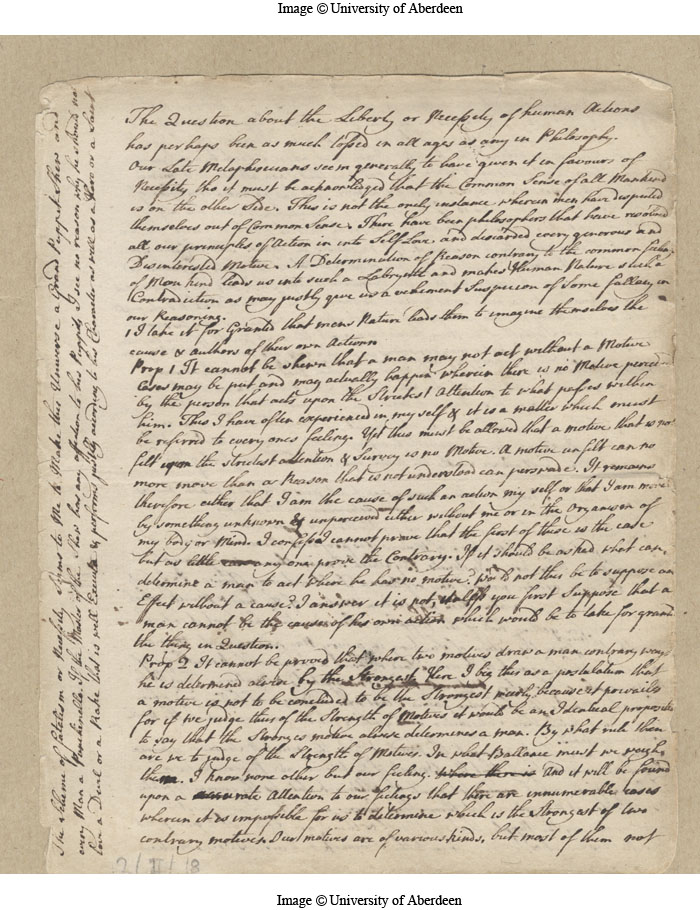 Image © University of Aberdeen
The Question about the Liberty or Necessity of human Actions
has perhaps been as much tossed in all ages as any in Philosophy.
Our Late Metaphisicians seem generally to have given it in favours of
Necessity tho it must be acknowledged that the Common Sense of all Mankind
is on the other Side. This is not the only instance wherein men have disputed
themselves out of Common Sense. There have been philosophers that have resolved
all our principles of Action in into Self Love and discarded every generous and
Disinterested Motive. A Determination of Reason contrary to the common feelings
of Mankind leads us into such a Labrynth and makes Human Nature such a
Contradiction as may justly give us a vehement Suspicion of some fallacy in
our Reasoning.
1 I take it for Granted that mens Nature leads them to imagine themselves the
cause & authors of their own Actions
Prop 1 It cannot be shewn that a man may not act without a Motive
Cases may be put and may actually happen wherein there is no Motive perceived
by the person that acts upon the Strictest Attention to what passes within
him. This I have often experienced in my self & it is a matter which must
be referred to every ones feeling. Yet this must be allowed that a motive that is not
felt upon the strictest attention & Survey is no Motive. A motive unfelt can no
more move than a Reason that is not understood can perswade. It remains
therefore either that I am the cause of such an action my self or that I am moved
by something unknown & unperceived either without me or in the Organism of
my body or Mind. I confess I cannot prove that the first of these is the case
but as little can any one prove the Contrary. If it should be asked what can
determine a man to act where he has no motive? Would not this be to suppose an
Effect without a cause? I answer it is not, unless you first Suppose that a
man cannot be the cause of his own action which would be to take for granted
the thing in Question.
Prop 2 It cannot be proved that where two motives draw a man contrary ways
he is determined alwise by the Strongest. Here I beg this as a postulatum that
a motive is not to be concluded to be the Strongest merely because it prevails
for if we judge thus of the Strength of Motives it would be an Identical proposition
to say that the Strongest motive alwise determines a man. By what rule then
are we to judge of the Strength of Motives. In what Ballance must we weigh
them. I know none other but our feeling. where there is and it will be found
upon a accurate Attention to our feelings that there are innumerable cases
wherein it is impossible for us to determine which is the Strongest of two
contrary motives. Our motives are of various kinds, but most of them not
The Scheme of Fatalism or Necessity Seems to Me to Make this Universe a Grand Puppet Shew and
every Man a Punchinello. If the Master of the Shew has any affection to his Puppits I see no reason why he should not
love a Devil or a Rake that is well Executed & performs justly according to his Character as well as a Hero or a Saint
2/II/8
Image © University of Aberdeen